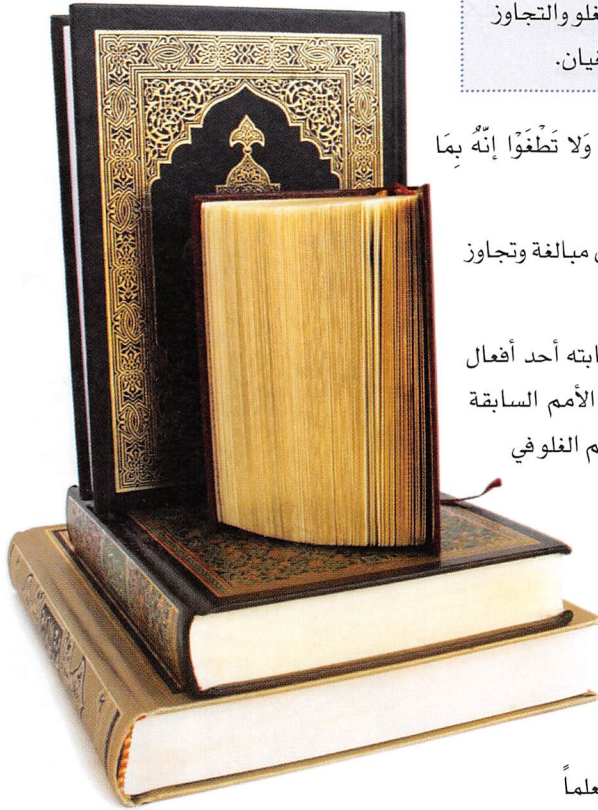 غلو والتجاوز
يان.
وَلا تَطْغَوْا إنّهُ بِمَا
مبالغة وتجاوز
ابته أحد أفعال
الأمم السابقة
م الغلو في
علماً